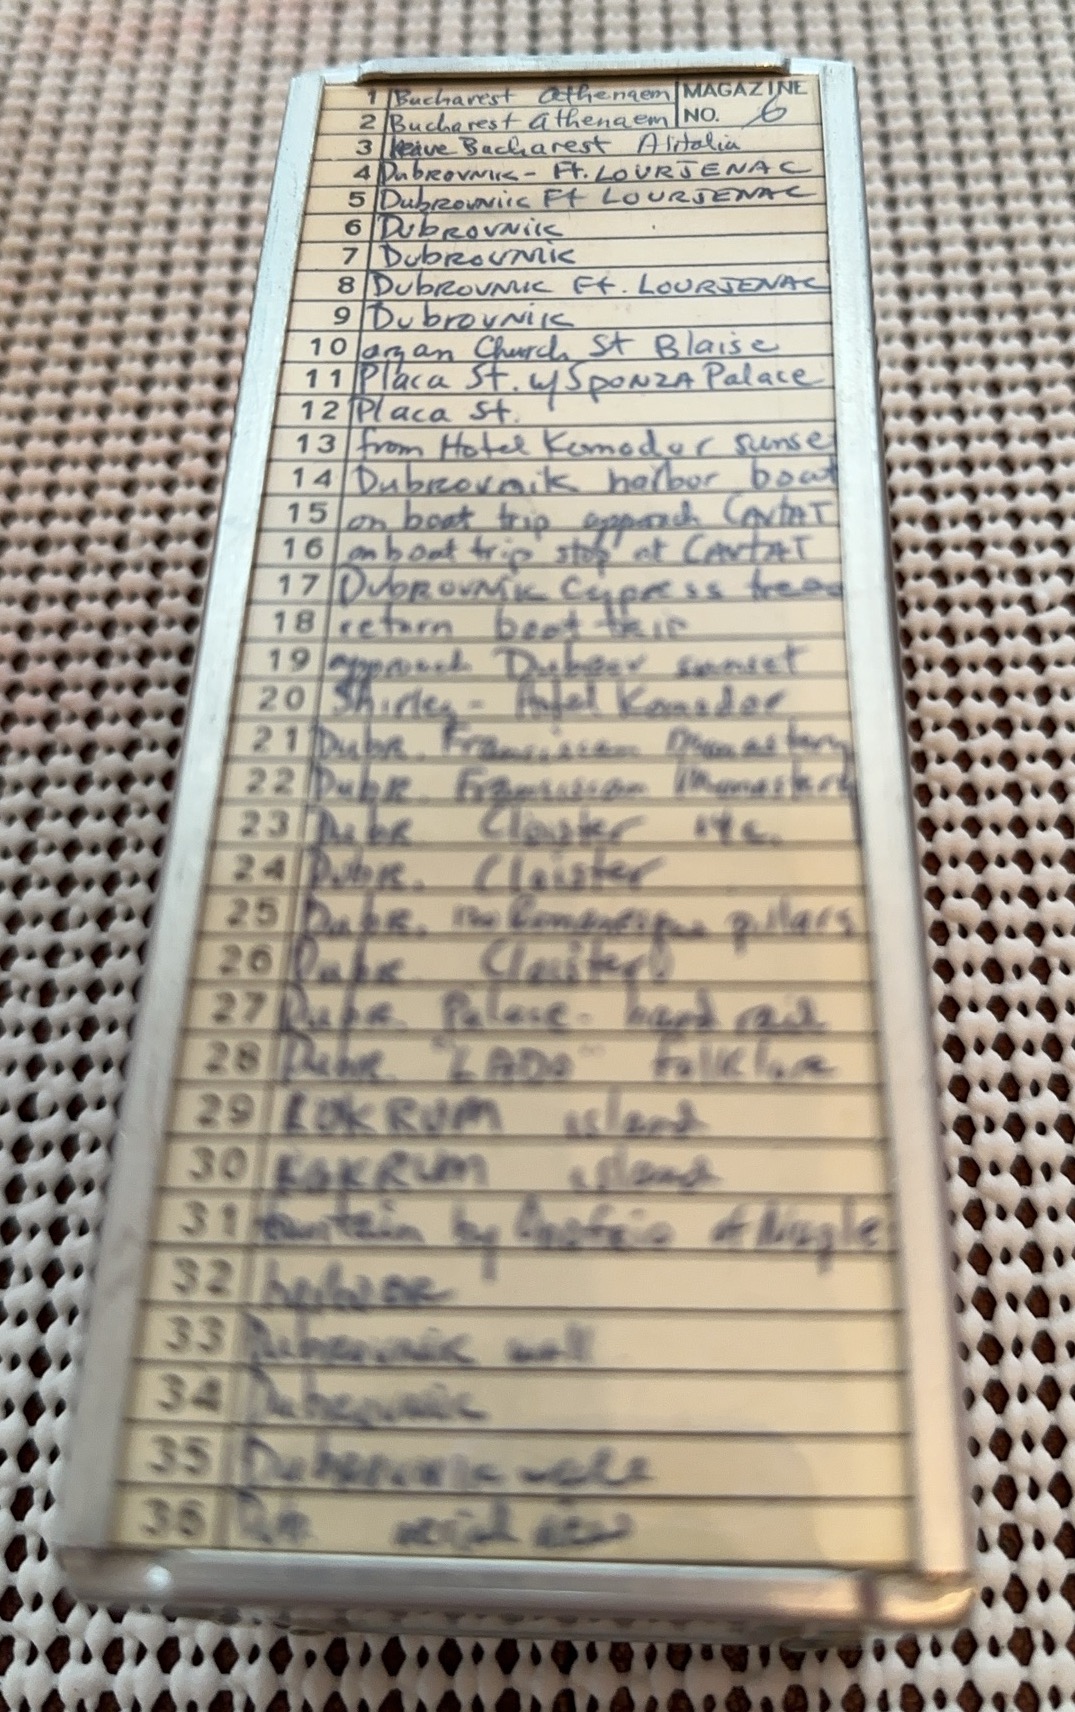 MAGAZINE
NO. 6
1 Bucharest Athenaem
2 Bucharest Athenaem
3 leave Bacharest Airtalia
4 Dubrovnik - Ft. LOURJENAC
5 Dubrovnik Ft LOURJENAC
6 Dubrovnik
7 Dubrovnik
8 Dubrovnik Ft. LOURJENAC
9 Dubrovnik
10 organ Church St Blaise
11 Placa St. w/ SPONZA Palace
12 Placa St.
13 from Hotel Komodor sunse
14 Dubrovnik harbor boat
15 on boat trip approach CAVTAT
16 on boat trip stop at CAVTAT
17 Dubrovnik Cypress trees
18 return boat trip
19 approach Dubrov sunset
20 Shirley - Hotel Komodor
21 Dubr. Franciscan Monastery
22 Dubr. Franciscan Monastery
23 Dubr. Cloister 14c.
24 Dubr. Cloister
25 Dubr. 120 Romanesque pillars
26 Dubr. Cloister
27 Dubr. Palace - hand rail
28 Dubr. "LADO" Folklore
29 LOKRUM island
30 LOKRUM island
31 fountain by Onofrio of
32 harbor
33 Dubrovnik wall
34 Dubrovnik
35 Dubrovnik walls
36 aerial view